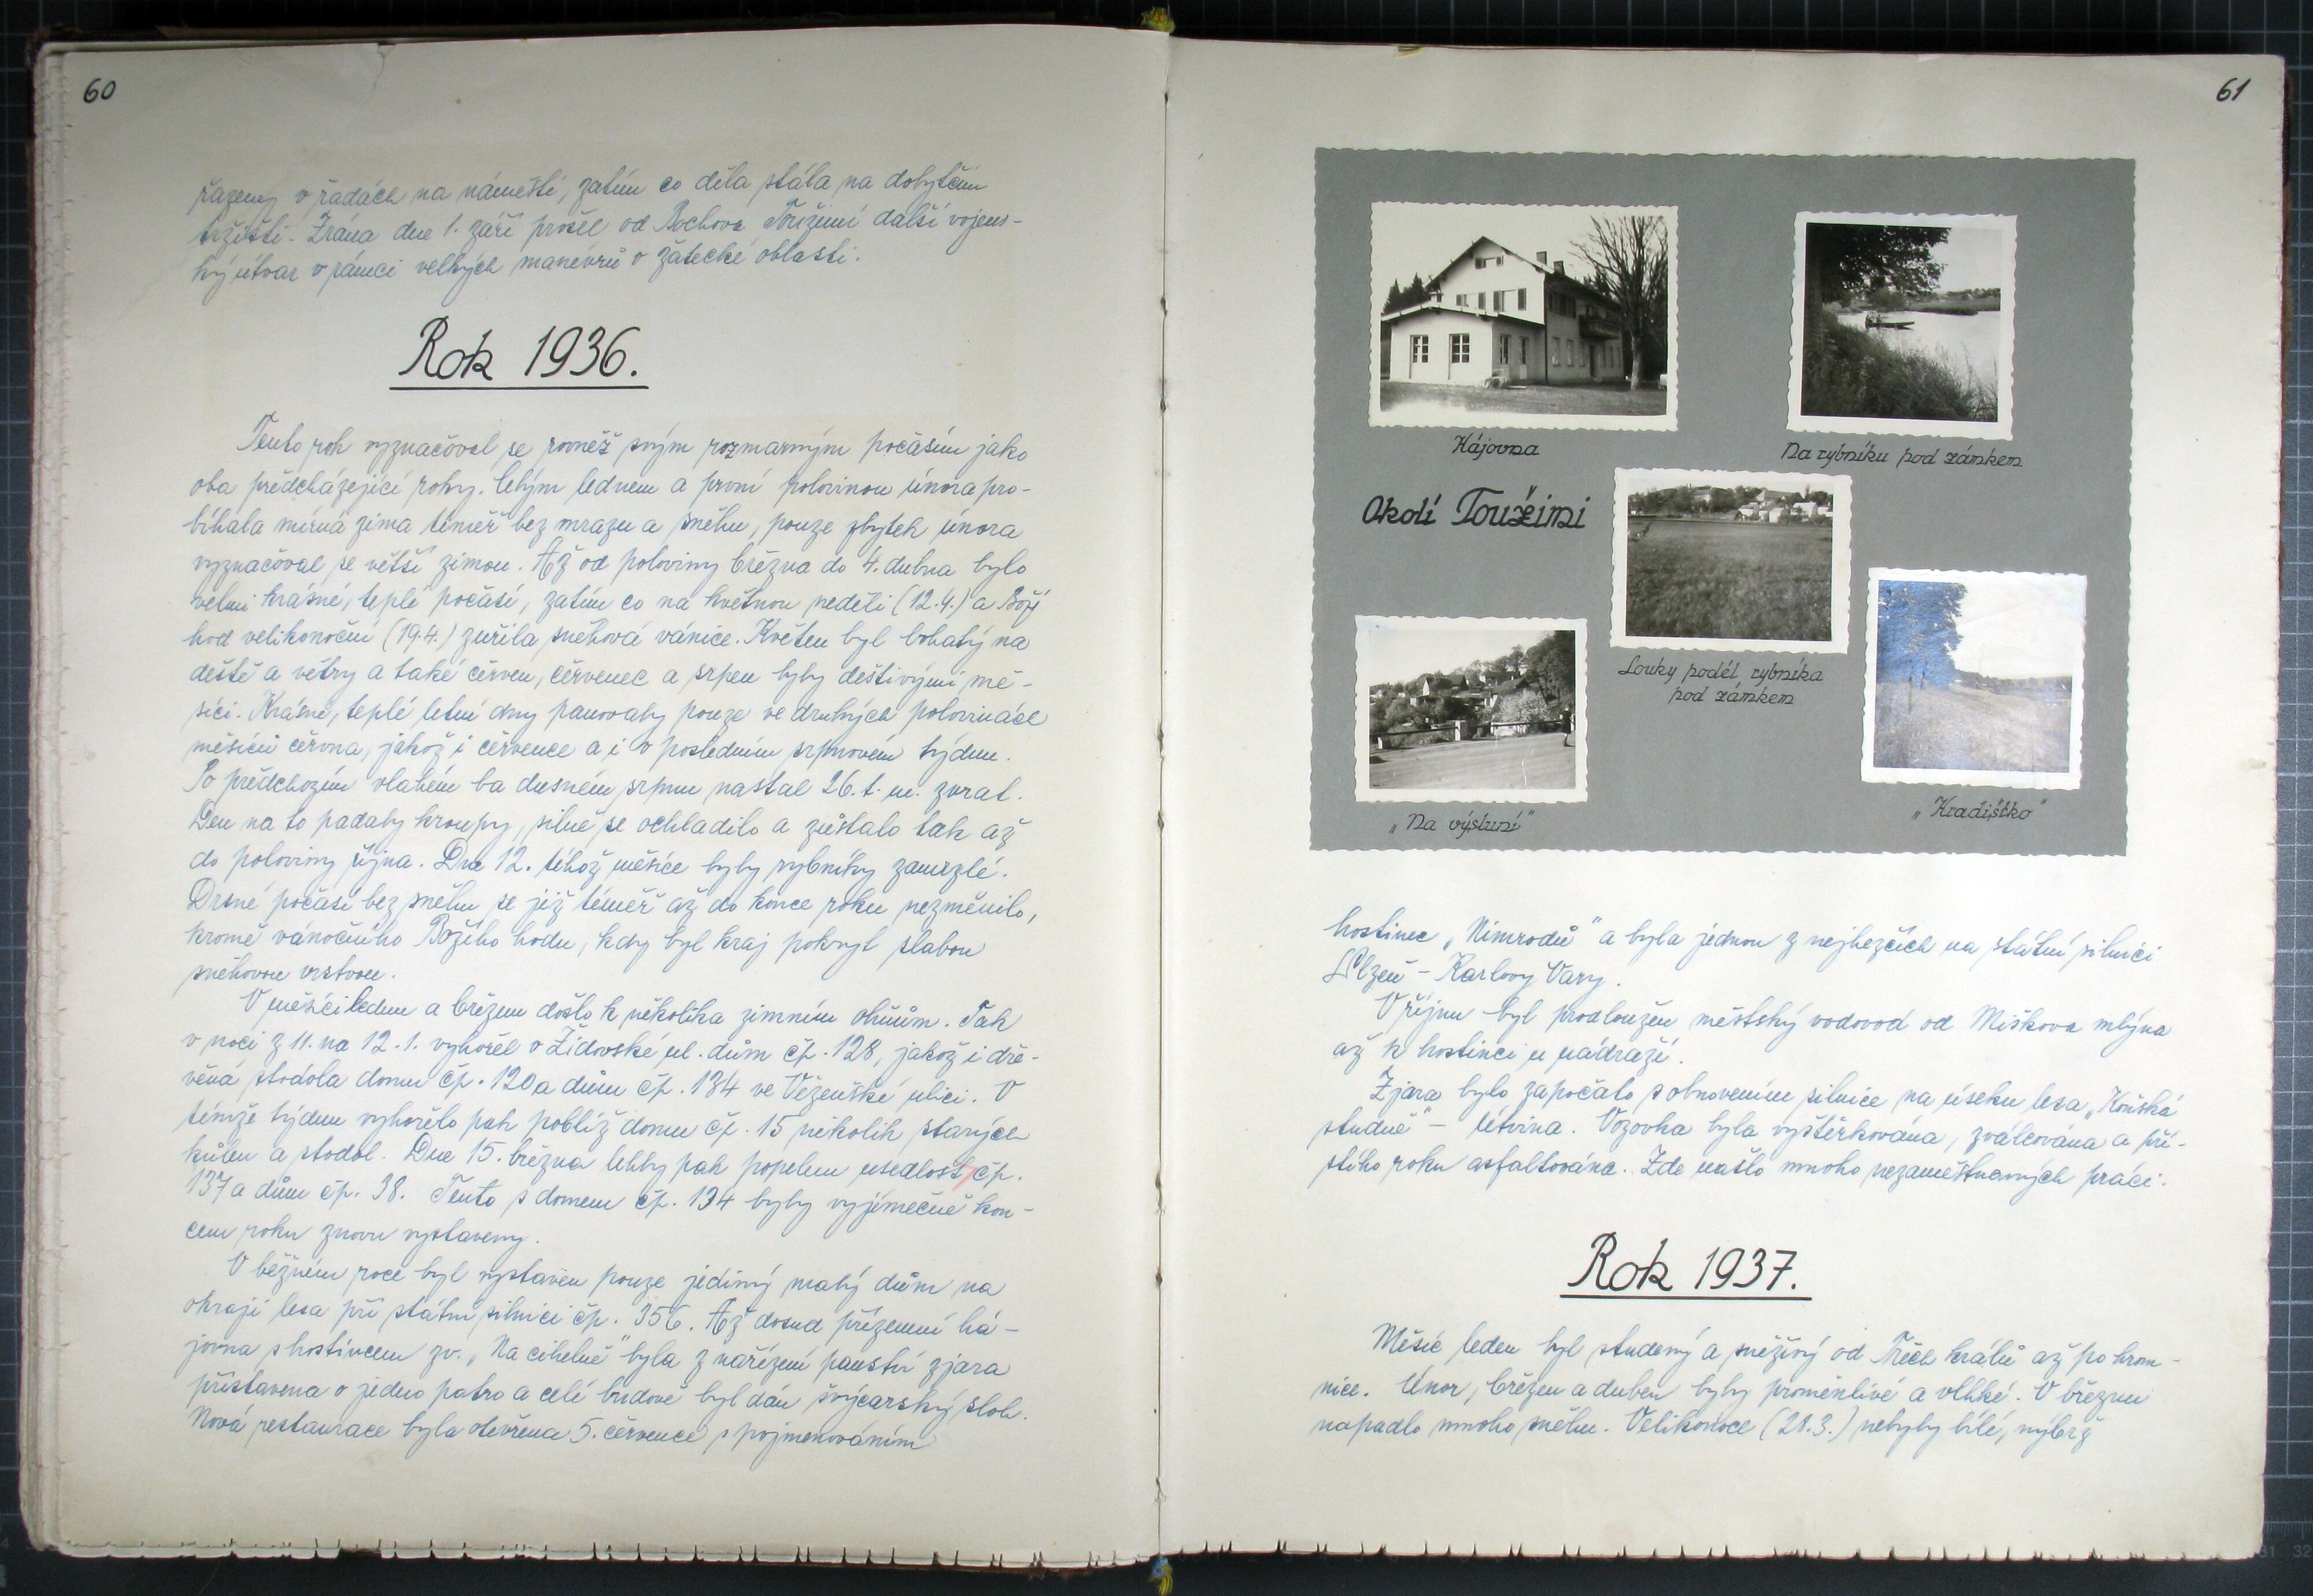 60
řazeny v řadách na náměstí, zatím co děla stála na dobytčím
tržišti. Zrána dne 1. září prošel od Bochova Toužimí další vojens-
ký útvar v rámci velkých manévrů v žatecké oblasti.
Rok 1936.
Tento rok vyznačoval se rovněž svým rozmarným počasím jako
oba předcházející roky. Celým lednem a první polovinou února pro-
bíhala mírná zima téměř bez mrazu a sněhu, pouze zbytek února
vyznačoval se větší zimou. Až od poloviny března do 4. dubna bylo
velmi krásné, teplé počasí, zatím co na květnou neděli (12.4.) a Boží
hod velikonoční (19.4.) zuřila sněhová vánice. Květen byl bohatý na
deště a větry a také červen, červenec a srpen byly deštivými mě-
síci. Krásné, teplé letní dny panovaly pouze ve druhých polovinách
měsíců června, jakož i července a i v posledním srpnovém týdnu.
Po předchozím vlahém ba dusném srpnu nastal 26. t. m. zvrat.
Den na to padaly kroupy, silně se ochladilo a zůstalo tak až
do poloviny října. Dne 12. téhož měsíce byly rybníky zamrzlé.
Drsné počasí bez sněhu se již téměř až do konce roku nezměnilo,
kromě vánočního Božího hodu, kdy byl kraj pokryt slabou
sněhovou vrstvou.
V měsíci lednu a březnu došlo k několika zimním ohňům. Tak
v noci z 11. na 12.1. vyhořel v Židovské ul. dům čp. 128, jakož i dře-
věná stodola domu čp. 120 a dům čp. 134 ve Vězeňské ulici. V
témže týdnu vyhořelo pak poblíž domu čp. 15 několik starých
kůlen a stodol. Dne 15. března lehly pak popelem usedlost čp.
137 a dům čp. 38. Tento s domem čp. 134 byly vyjímečně kon-
cem roku znovu vystaveny.
V běžném roce byl vystavěn pouze jediný malý dům na
okraji lesa při státní silnici čp. 356. Až dosud přízemní há-
jovna s hostincem zv. „Na cihelně" byla z nařízení panství zjara
přistavena o jedno patro a celé budově byl dán švýcarský sloh.
Nová restaurace byla otevřena 5. července s pojmenováním
61
Hájovna
Na rybníku pod zámkem
Okolí Toužimi
Louky podél rybníka
pod zámkem
„Na výsluní"
„Hradištko"
hostinec „Nimrodů" a byla jednou z nejhezčích na státní silnici
Plzeň - Karlovy Vary.
V říjnu byl prodloužen městský vodovod od Miškova mlýna
až k hostinci u nádraží.
Zjara bylo započato s obnovením silnice na úseku lesa „Koňská
studně" - Útvina. Vozovka byla vyštěrkována, zválcována a pří-
štího roku asfaltována. Zde našlo mnoho nezaměstnaných práci.
Rok 1937.
Měsíc leden byl studený a sněživý od Třech králů až po hrom-
nice. Únor, březen a duben byly proměnlivé a vlhké. V březnu
napadlo mnoho sněhu. Velikonoce (28.3.) nebyly bílé, nýbrž